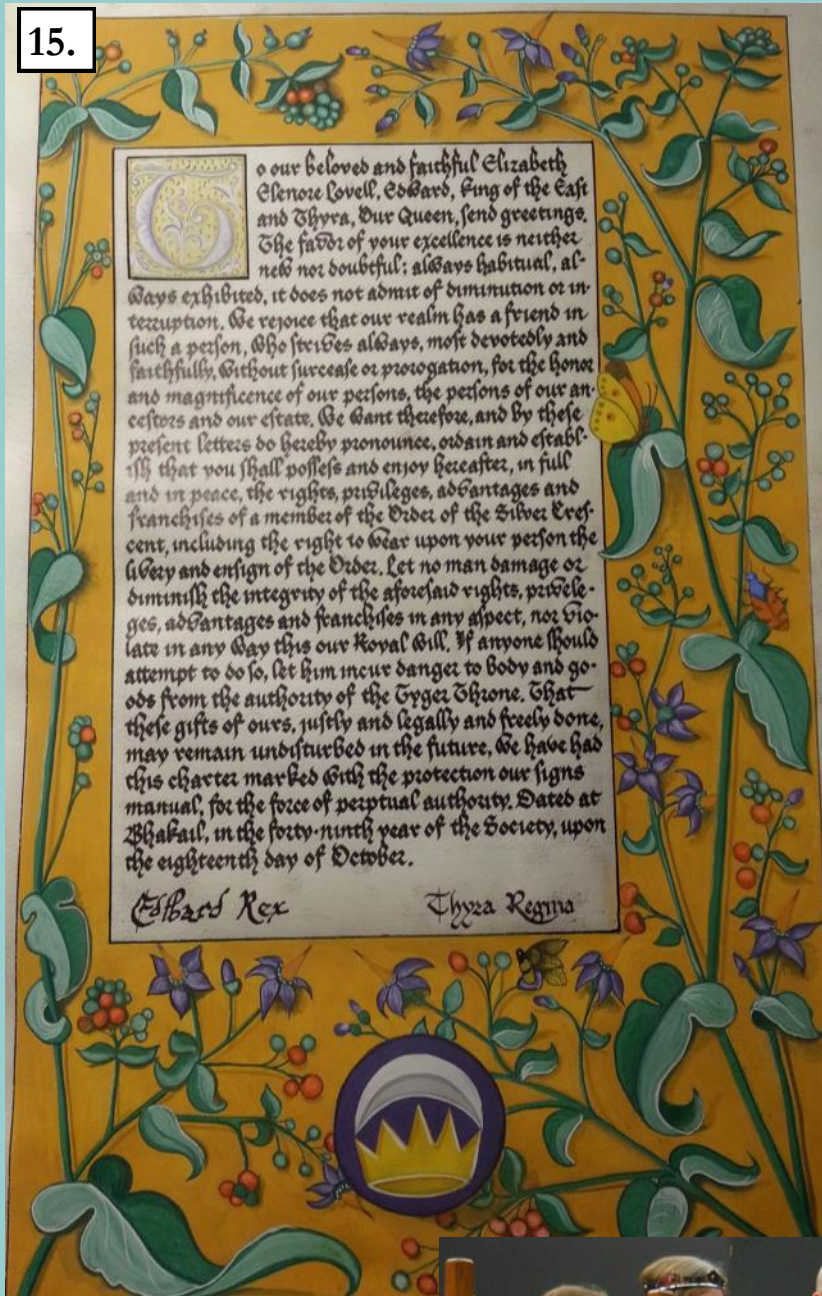 15.
To our beloved and faithful Elizabeth
Elenore Lovell, Edward, King of the East
and Thyra, Our Queen, send greetings.
The favor of your excellence is neither
new nor doubtful; always habitual, al-
ways exhibited, it does not admit of diminution or in-
terruption. We rejoice that our realm has a friend in
such a person, who strives always, most devotedly and
faithfully, without surcease or prorogation, for the honor
and magnificence of our persons, the persons of our an-
cestors and our estate. We want therefore, and by these
present letters do hereby pronounce, ordain and establ-
ish that you shall possess and enjoy hereafter, in full
and in peace, the rights, privileges, advantages and
franchises of a member of the Order of the Silver Cres-
cent, including the right to wear upon your person the
livery and ensign of the Order. Let no man damage or
diminish the integrity of the aforesaid rights, privele-
ges, advantages and franchises in any aspect, nor vio-
late in any way this our Royal Will. If anyone should
attempt to do so, let him incur danger to body and go-
ods from the authority of the Tyger Throne. That
these gifts of ours, justly and legally and freely done,
may remain undisturbed in the future, we have had
this charter marked with the protection our signs
manual, for the force of perptual authority. Dated at
Bhakail, in the forty-ninth year of the Society, upon
the eighteenth day of October.
Edward Rex Thyra Regina